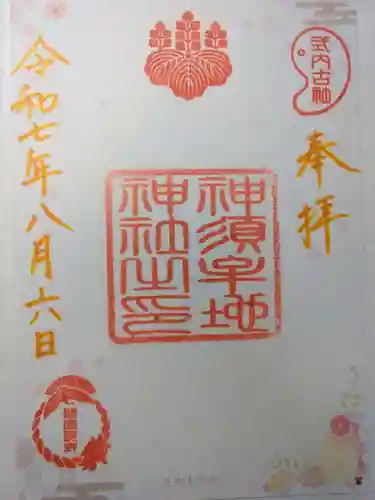 式内古社
奉拝
神須牟地
神社之印
令和七年八月六日